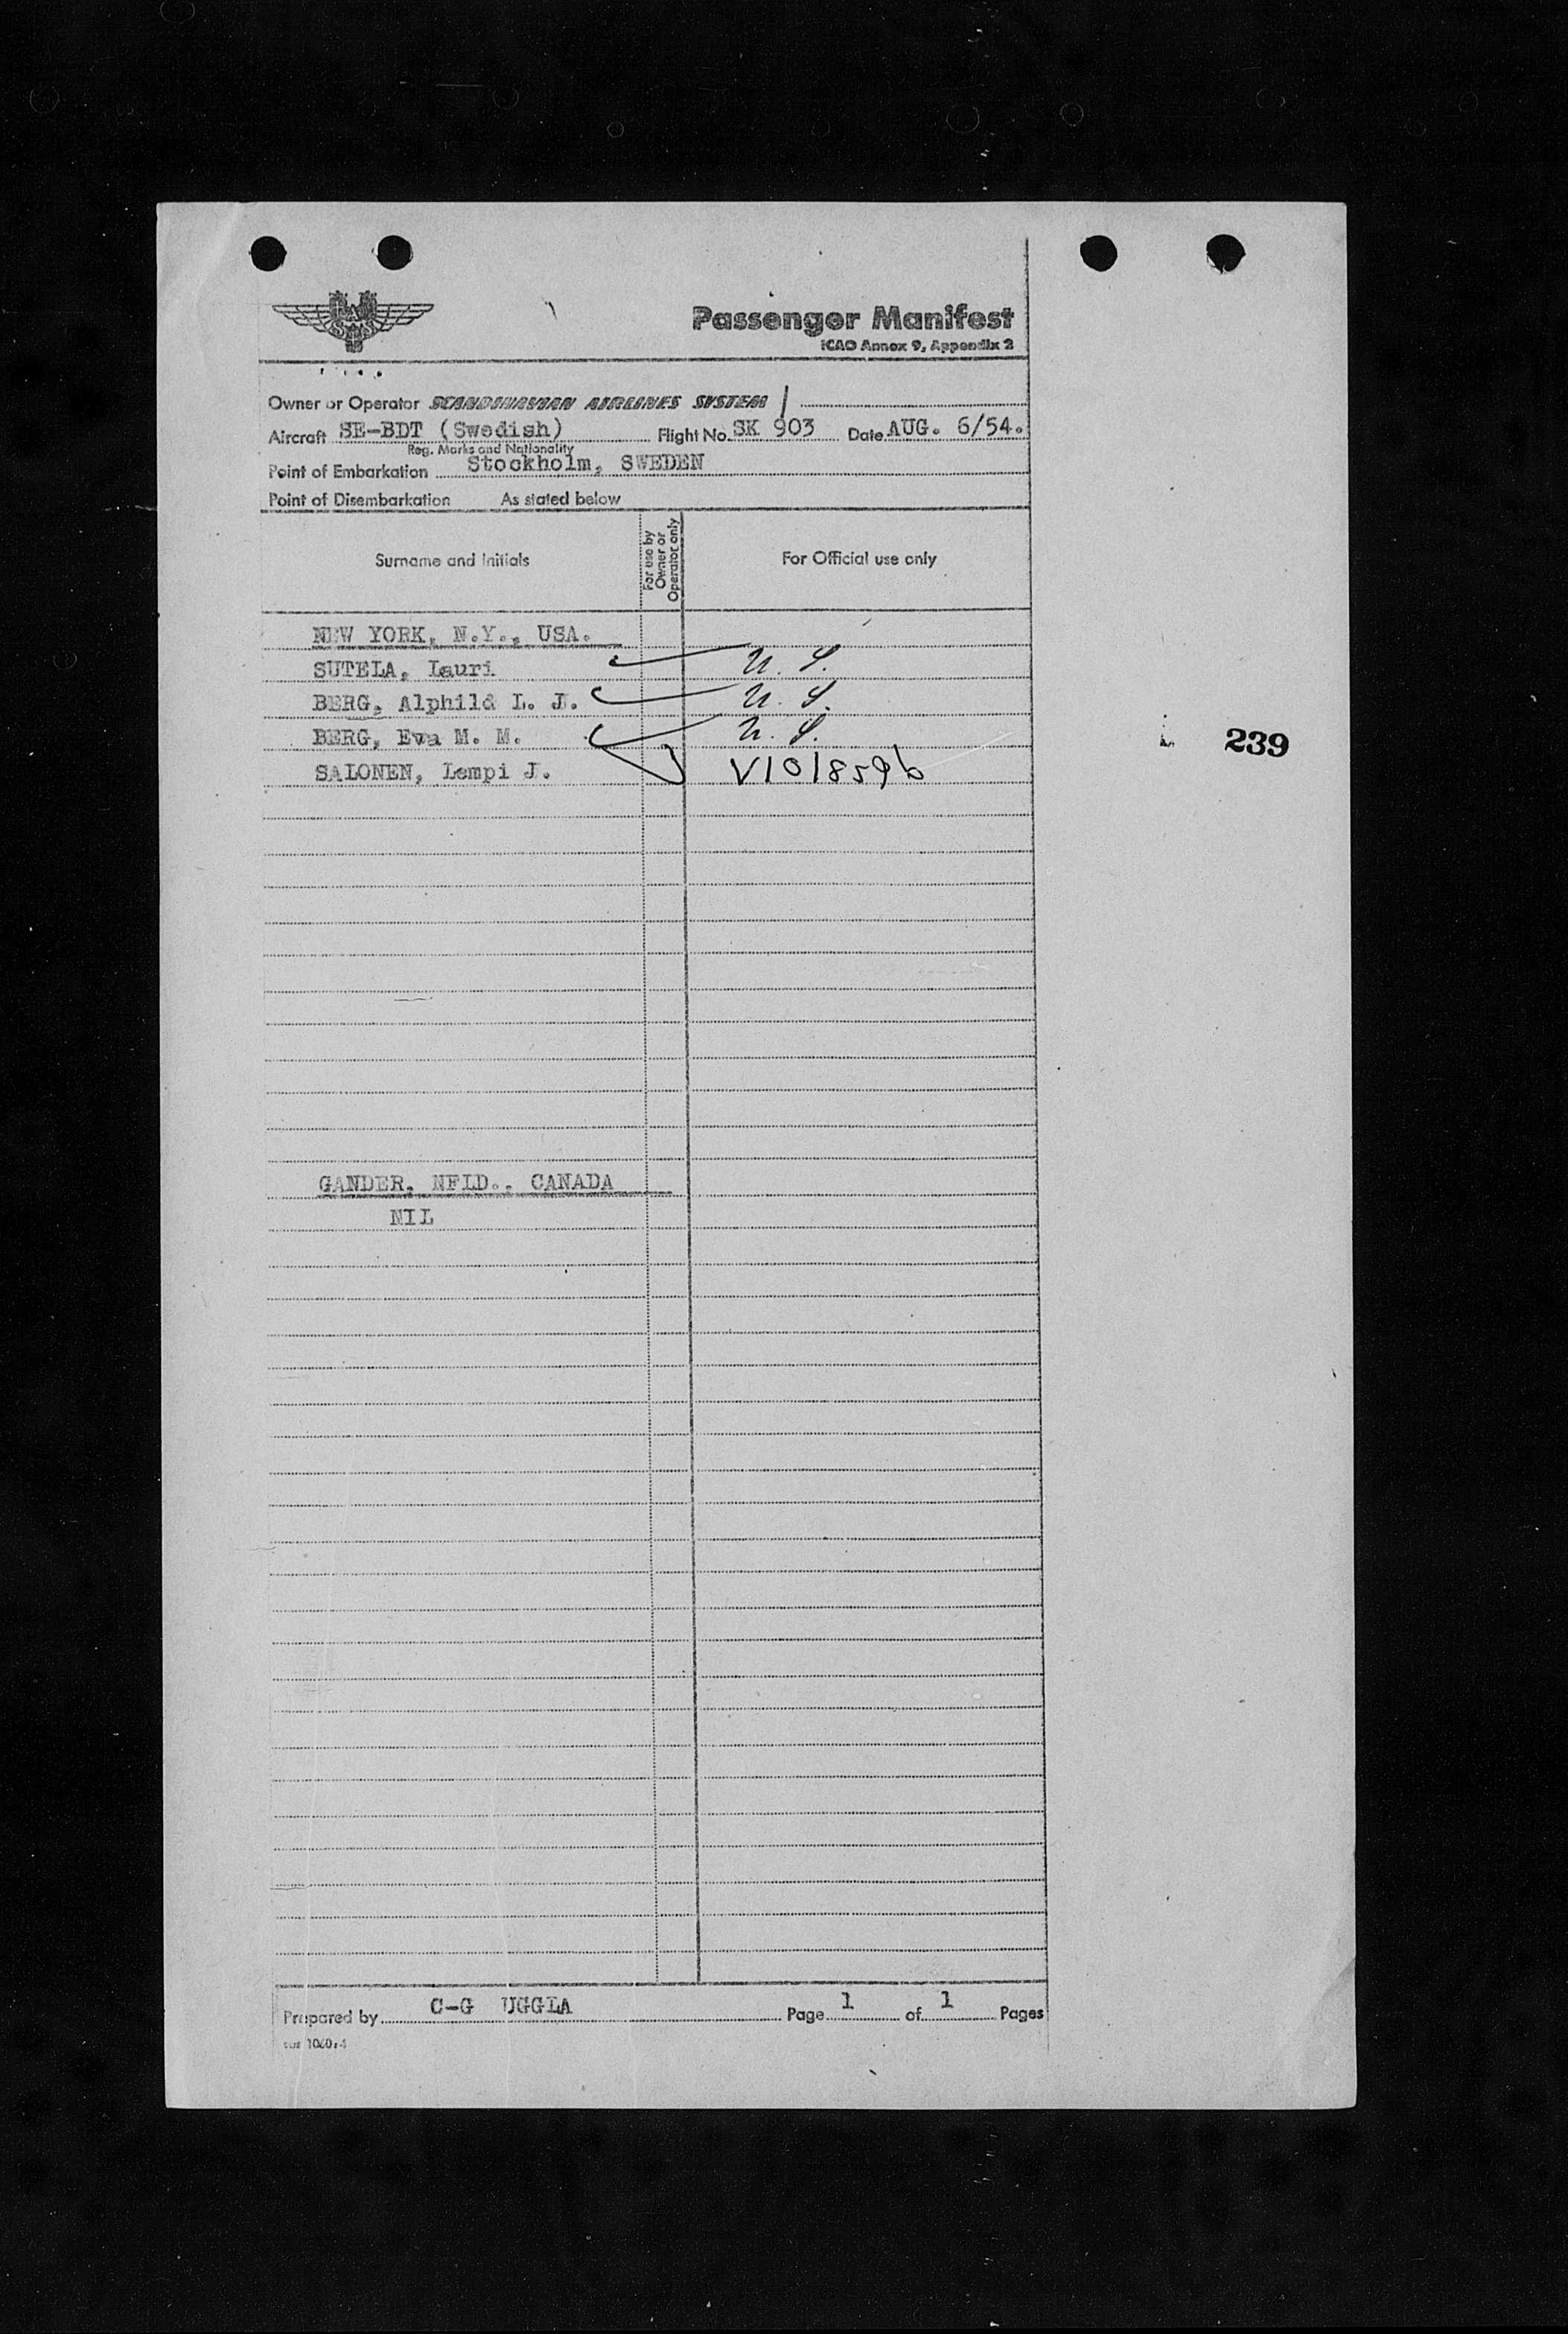 SAS
Passenger Manifest
ICAO Annex 9, Appendix 2
Owner or Operator SCANDINAVIAN AIRLINES SYSTEM
Aircraft SE-BDT (Swedish) Flight No. SK 903 Date AUG. 6/54.
Reg. Marks and Nationality
Point of Embarkation Stockholm, SWEDEN
Point of Disembarkation As stated below
Surname and Initials
For use by Owner or Operator only
For Official use only
NEW YORK, N.Y., USA.
SUTELA, Lauri U. S.
BERG, Alphild L. J. U. S.
BERG, Eva M. M. U. S.
239
SALONEN, Lempi J. V1018596
GANDER, NFLD., CANADA
NIL
Prepared by C-G UGGLA Page 1 of 1 Pages